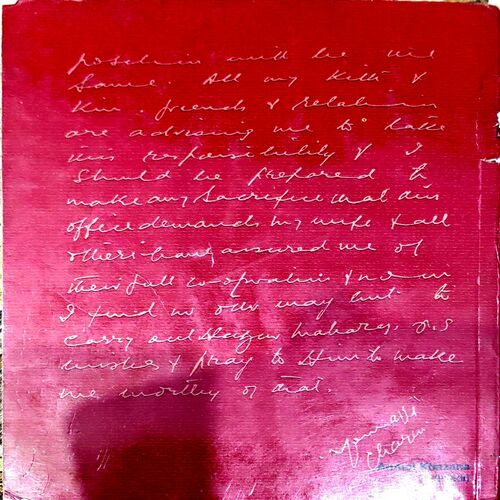 position will be the
same. All my Kith &
Kin, friends & relations
are advising me to take
this responsibility & I
should be prepared to
make any sacrifice that this
office demands. My wife & all
others have assured me of
their full co-operation & now
I find no other way but to
carry out Hazur Maharaj's
wishes & pray to Him to make
me worthy of that.
Charan
Anmol Khazana